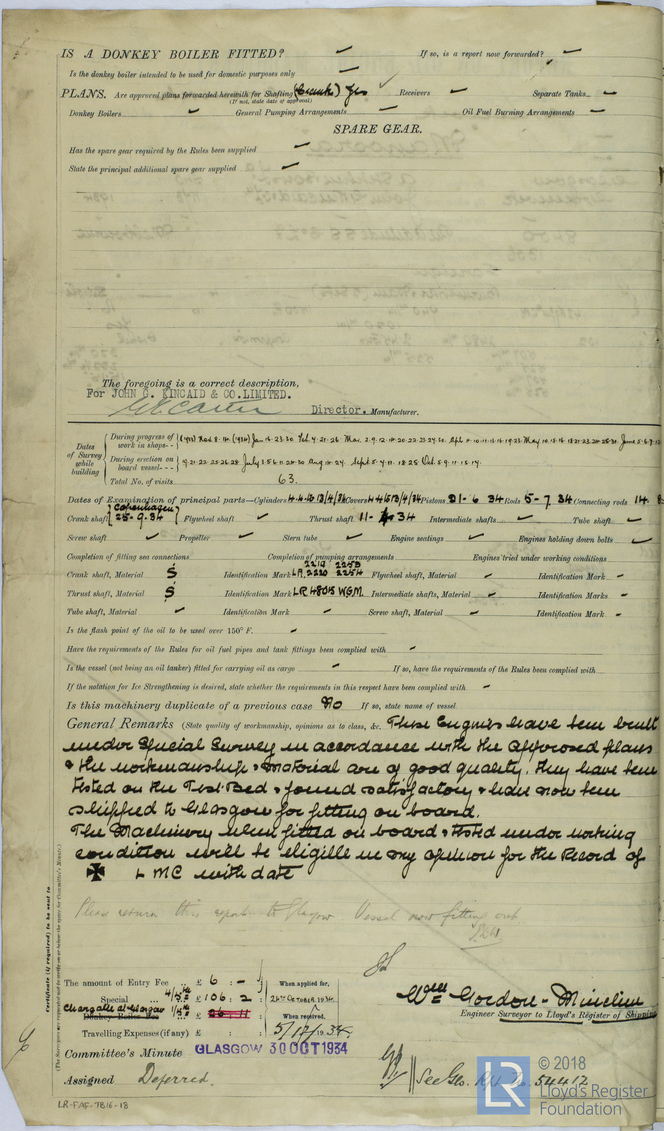 IS A DONKEY BOILER FITTED? If so, is a report now forwarded?
Is the donkey boiler intended to be used for domestic purposes only
PLANS. Are approved plans forwarded herewith for Shafting (Cranks) Yes Receivers Separate Tanks
(If not, state date of approval)
Donkey Boilers General Pumping Arrangements Oil Fuel Burning Arrangements
SPARE GEAR.
Has the spare gear required by the Rules been supplied
State the principal additional spare gear supplied
The foregoing is a correct description,
For JOHN G. KINCAID & CO. LIMITED.
Director. Manufacturer.
Dates of Survey while building
During progress of work in shops--
During erection on board vessel---
Total No. of visits 63.
Dates of Examination of principal parts—Cylinders Covers Pistons 21-6 34 Rods 5-7 34 Connecting rods
Crank shaft Copenhagen 25-9-34 Flywheel shaft Thrust shaft Intermediate shafts Tube shaft
Screw shaft Propeller Stern tube Engine seatings Engines holding down bolts
Completion of fitting sea connections Completion of pumping arrangements Engines tried under working conditions
Crank shaft, Material S Identification Mark LR. 2219 2253 2220 2254 Flywheel shaft, Material Identification Mark
Thrust shaft, Material S Identification Mark LR 48015 WGM. Intermediate shafts, Material Identification Marks
Tube shaft, Material Identification Mark Screw shaft, Material Identification Mark
Is the flash point of the oil to be used over 150° F.
Have the requirements of the Rules for oil fuel pipes and tank fittings been complied with
Is the vessel (not being an oil tanker) fitted for carrying oil as cargo If so, have the requirements of the Rules been complied with
If the notation for Ice Strengthening is desired, state whether the requirements in this respect have been complied with
Is this machinery duplicate of a previous case No If so, state name of vessel
General Remarks (State quality of workmanship, opinions as to class, &c. These Engines have been built
under Special Survey in accordance with the approved plans
& the workmanship & material are of good quality. They have been
tested on the Test Bed & found satisfactory & have now been
shipped to Glasgow for fitting on board.
The Machinery when fitted on board & tested under working
condition will be eligible in my opinion for the Record of
✠ LMC with date
Please return this report to Glasgow Vessel now fitting out
The amount of Entry Fee £ 6 : - : When applied for,
Special 4/5ths £ 106 : 2 : 26th October 1934
Chargeable at Glasgow 1/5th £ 26 : 11 When received,
Donkey Boiler Fee
Travelling Expenses (if any) £ : 5/12/1934
Wm Gordon-Minchin
Engineer Surveyor to Lloyd's Register of Shipping
Committee's Minute GLASGOW 30 OCT 1934
Assigned Deferred. See Gls. Rpt No. 54412
Certificate (if required) to be sent to
LR-FAF-7B16-18
© 2018
LR Lloyd's Register
Foundation